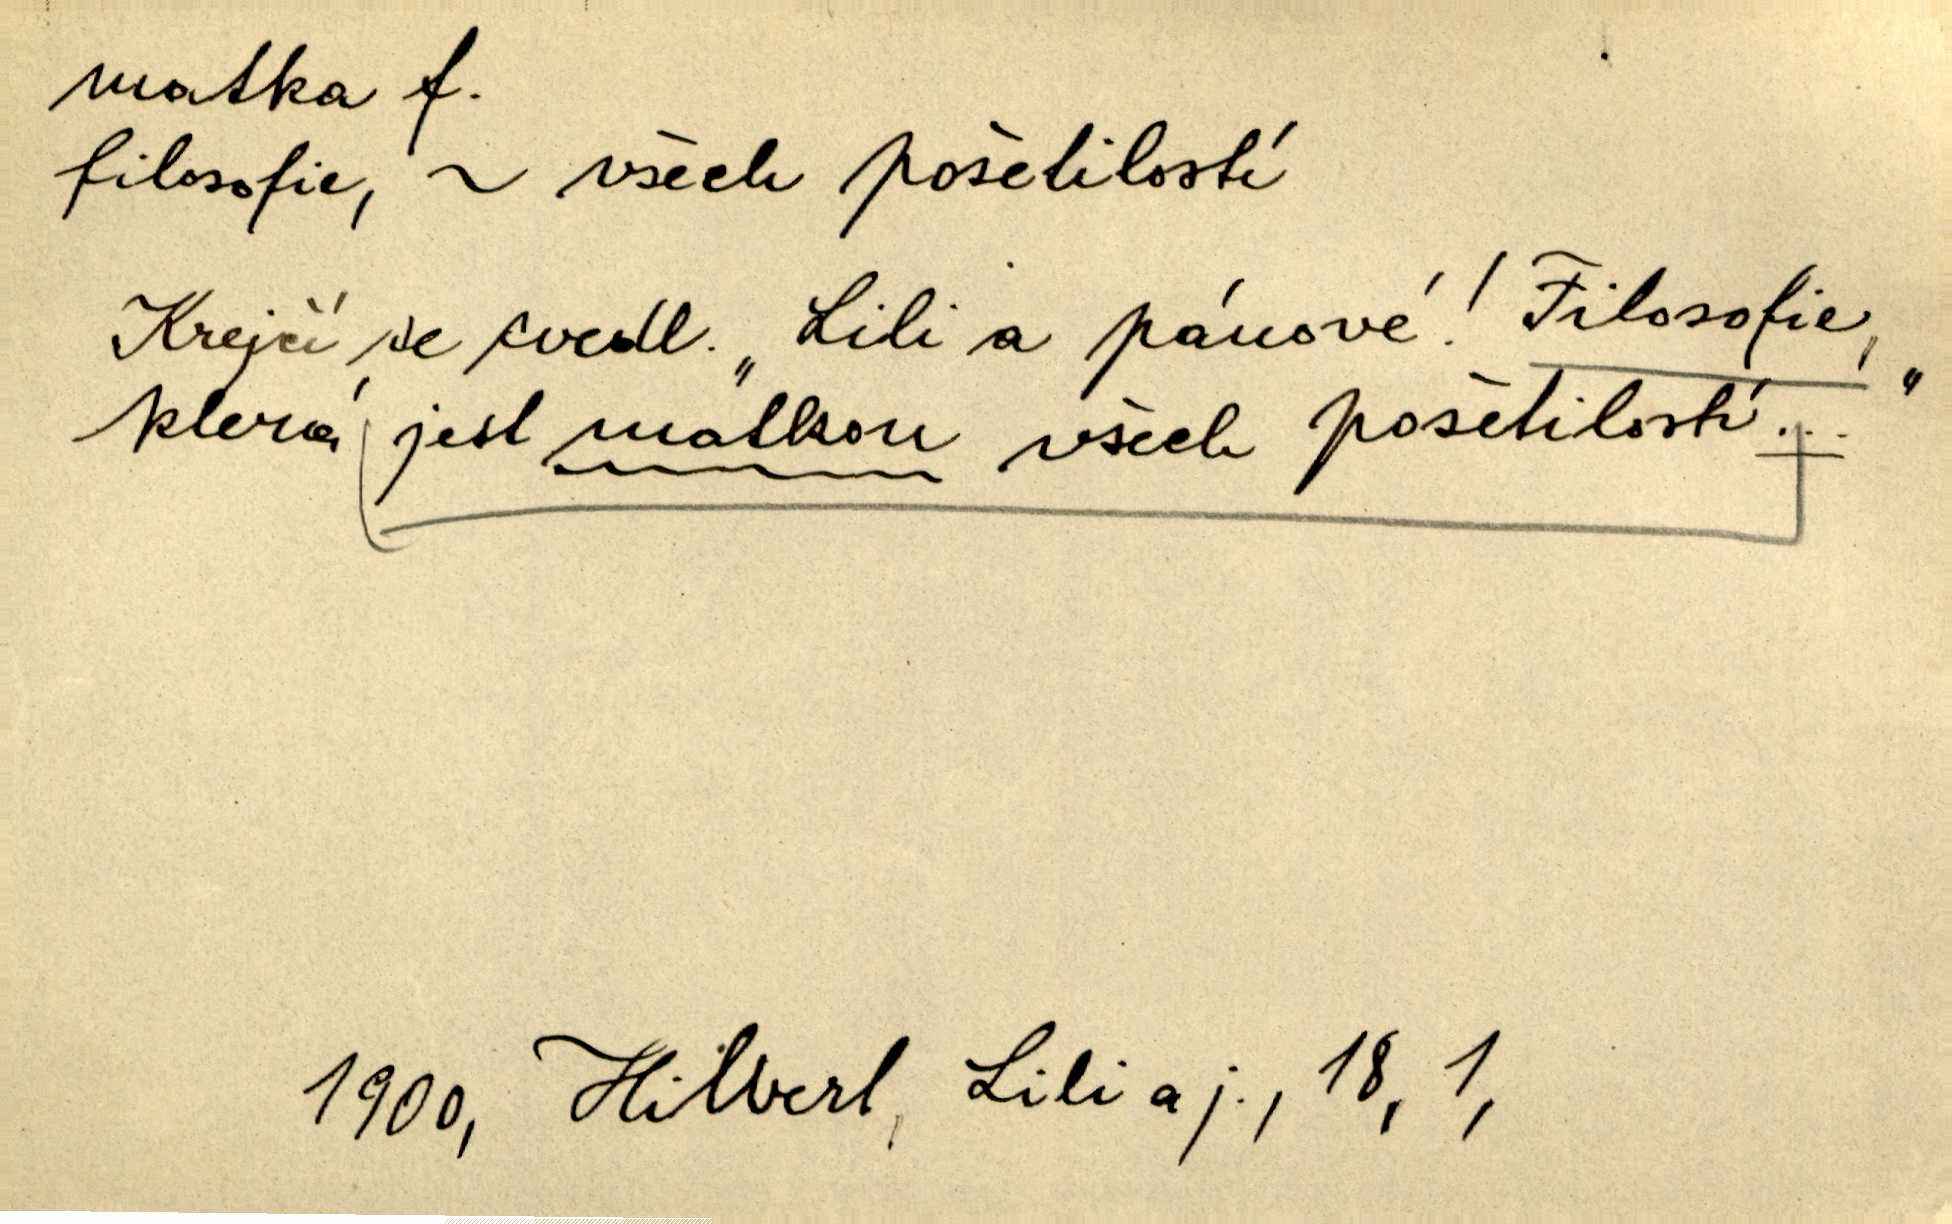 matka f.
filosofie, ~ všech pošetilostí
Krejčí se zvedl. „Lili a pánové! Filosofie,
která jest matkou všech pošetilostí..."
1900, Hilbert, Lili a j., 18, 1,